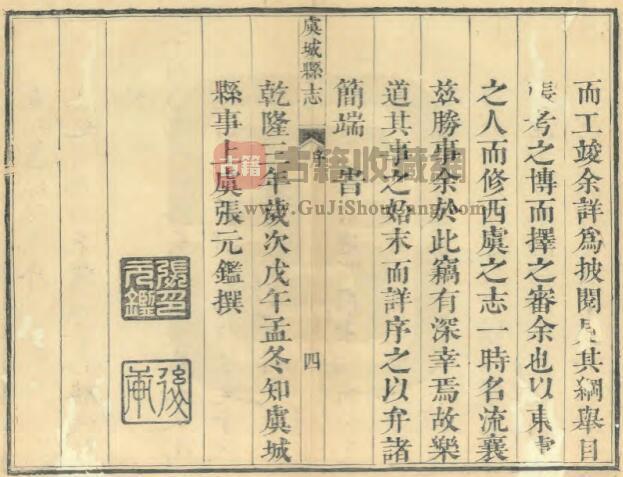 而工竣余詳爲披閱見其綱舉目
張考之博而擇之審余也以東虞
之人而修西虞之志一時名流襄
玆勝事余於此竊有深幸焉故樂
道其事之始末而詳序之以弁諸
簡端
虞城縣志
序
四
乾隆三年歲次戊午孟冬知虞城
縣事上虞張元鑑撰
張印元鑑
古籍
古籍收藏网
www.GuJiShouCang.com